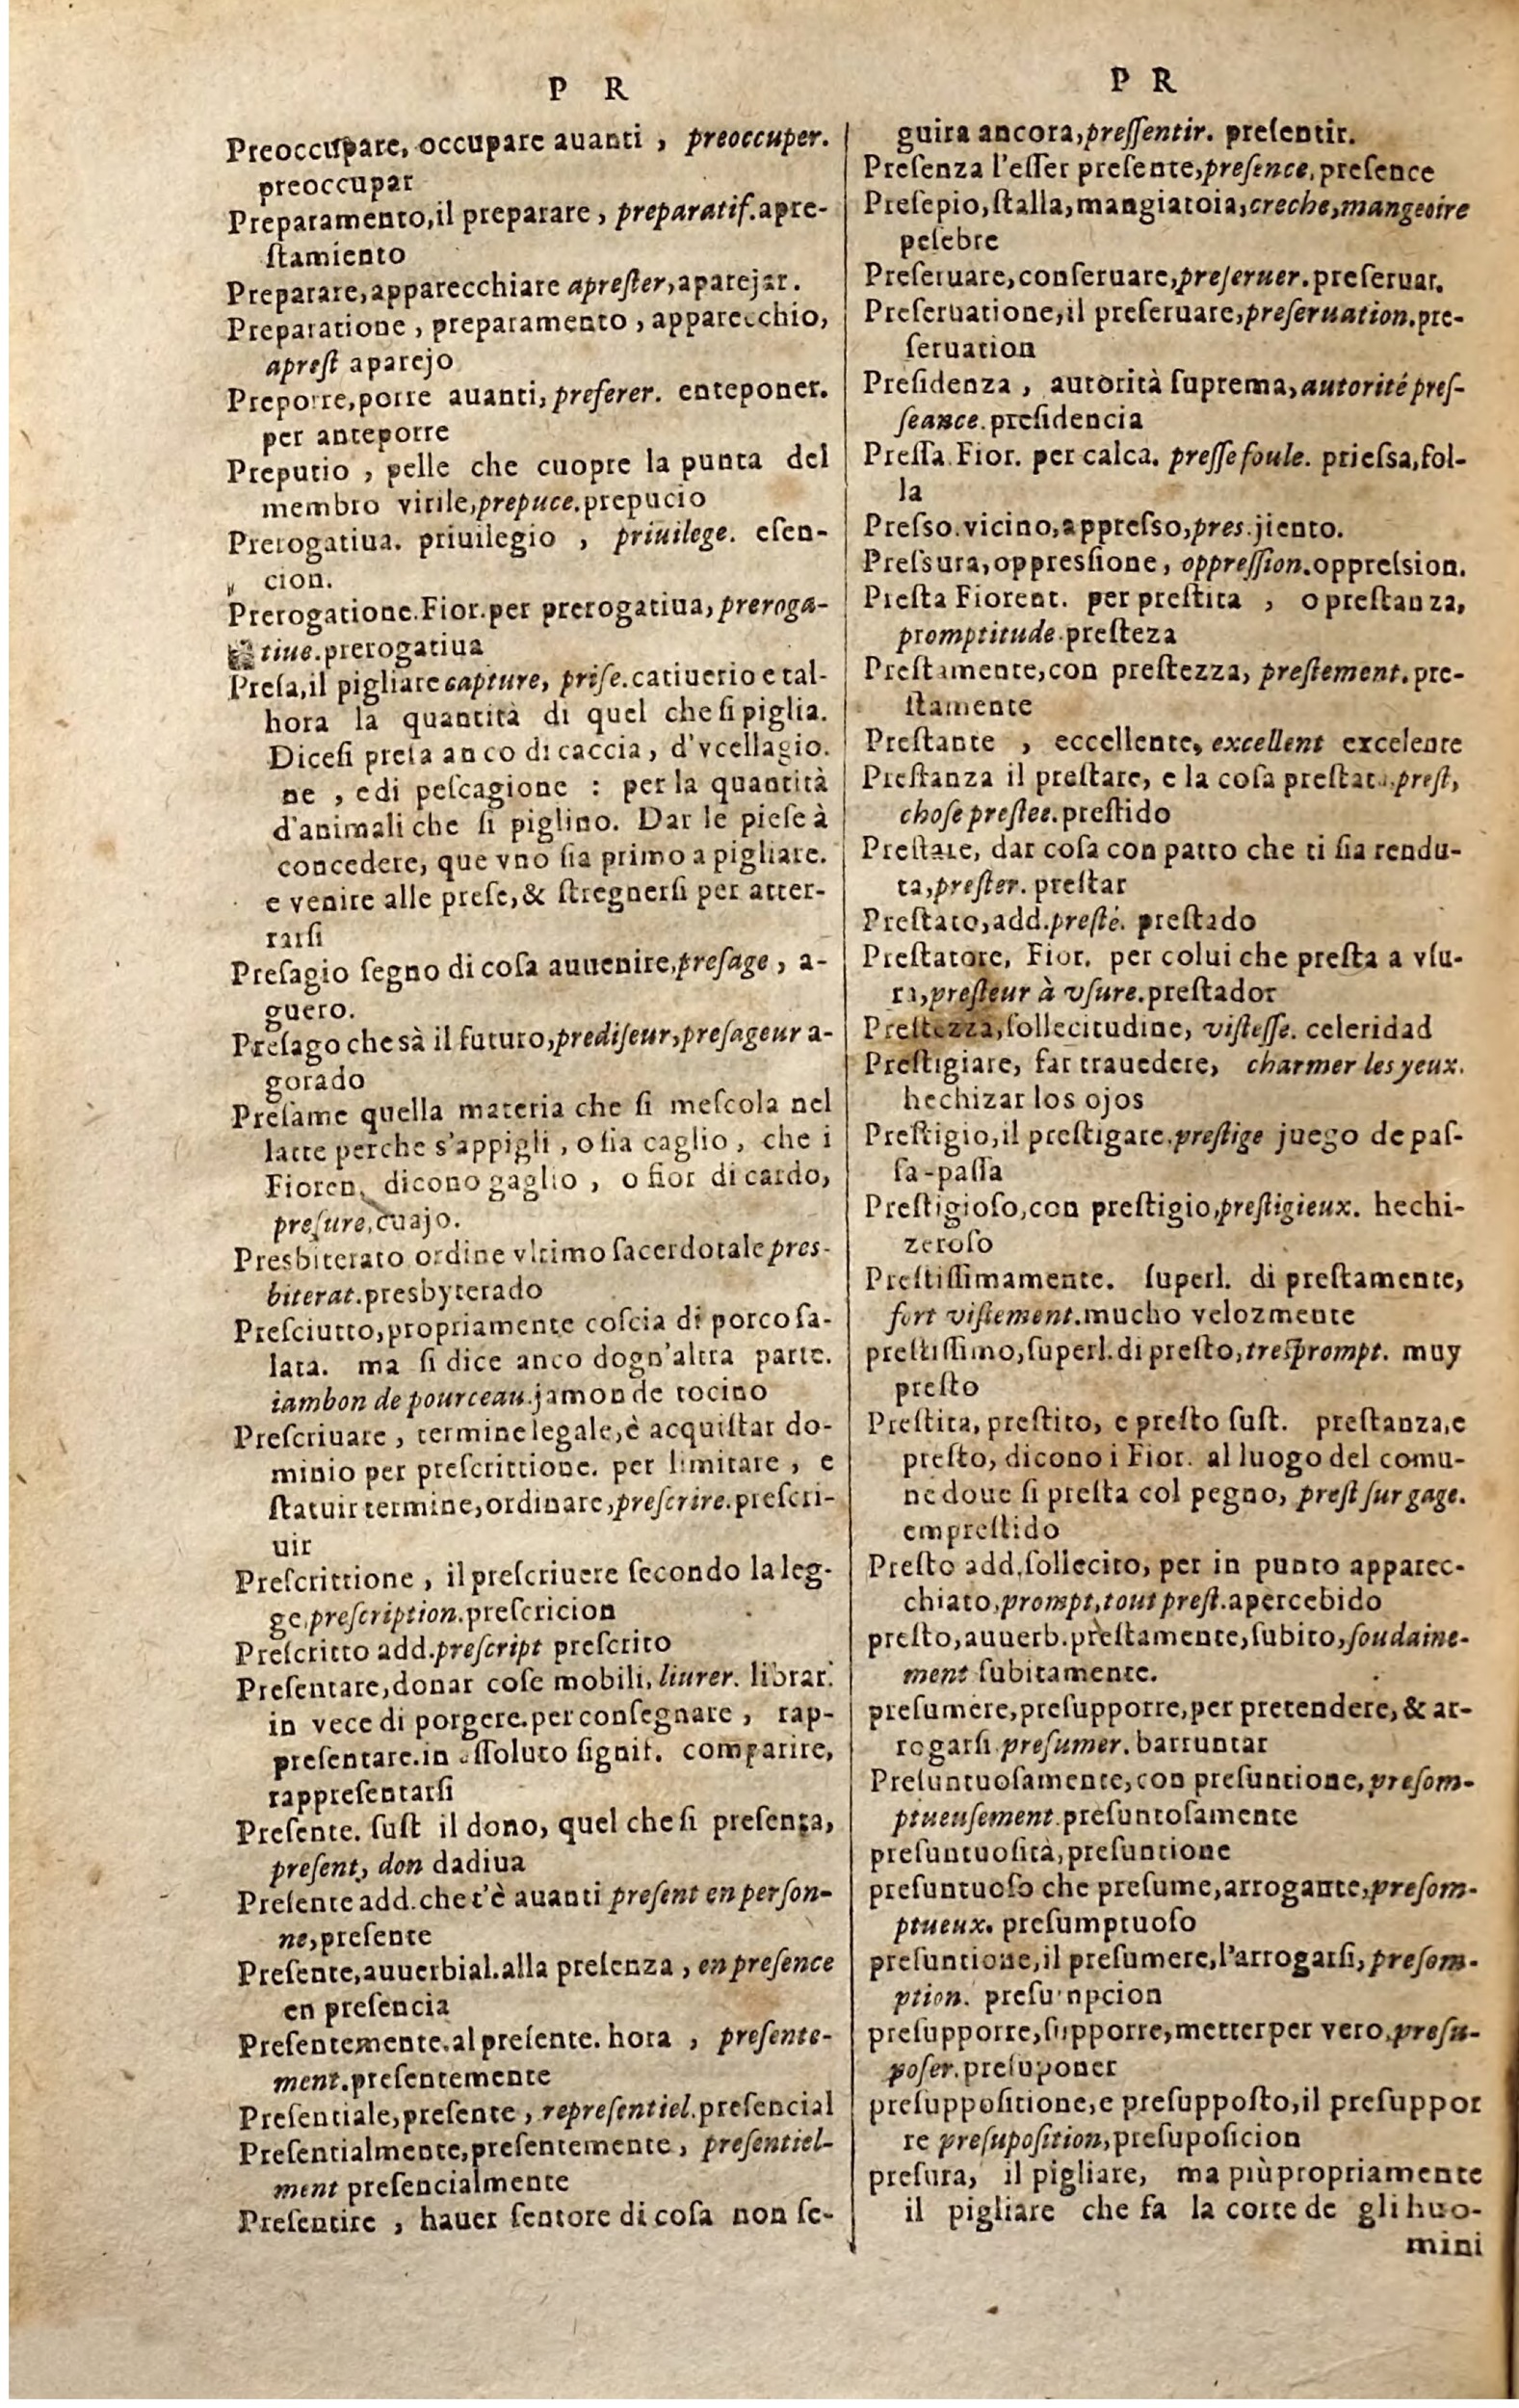 P R
Preoccupare, occupare auanti, preoccuper.
preoccupar
Preparamento,il preparare, preparatif.apre-
ſtamiento
Preparare,apparecchiare apreſter,aparejar.
Preparatione, preparamento, apparecchio,
apreſt aparejo
Preporre,porre auanti, preferer. enteponer.
per anteporre
Preputio, pelle che cuopre la punta del
membro virile,prepuce.prepucio
Prerogatiua. priuilegio, priuilege. eſen-
cion.
Prerogatione.Fior.per prerogatiua, preroga-
tiue.prerogatiua
Preſa,il pigliare capture, priſe.catiuerio e tal-
hora la quantità di quel che ſi piglia.
Diceſi preſa anco di caccia, d'vcellagio.
ne, e di peſcagione : per la quantità
d'animali che ſi piglino. Dar le pieſe à
concedere, que vno ſia primo a pigliare.
e venire alle preſe,& ſtregnerſi per atter-
rarſi
Preſagio ſegno di coſa auuenire,preſage, a-
guero.
Preſago che sà il futuro,prediſeur,preſageur a-
gorado
Preſame quella materia che ſi meſcola nel
latte perche s'appigli, o ſia caglio, che i
Fioren. dicono gaglio, o fior di cardo,
preſure,cuajo.
Presbiterato ordine vltimo ſacerdotale pres-
biterat.presbyterado
Preſciutto,propriamente coſcia di porco ſa-
lata. ma ſi dice anco dogn'altra parte.
iambon de pourceau.jamon de tocino
Preſcriuare, termine legale,è acquiſtar do-
minio per preſcrittione. per limitare, e
ſtatuir termine,ordinare,preſcrire.preſcri-
uir
Preſcrittione, il preſcriuere ſecondo la leg-
ge,preſcription.preſcricion
Preſcritto add.preſcript preſcrito
Preſentare,donar coſe mobili, liurer. librar.
in vece di porgere.per conſegnare, rap-
preſentare.in aſſoluto ſignif. comparire,
rappreſentarſi
Preſente. ſuſt il dono, quel che ſi preſenta,
preſent, don dadiua
Preſente add.che t'è auanti preſent en perſon-
ne,preſente
Preſente,auuerbial.alla preſenza, en preſence
en preſencia
Preſentemente.al preſente. hora, preſente-
ment.preſentemente
Preſentiale,preſente, repreſentiel.preſencial
Preſentialmente,preſentemente, preſentiel-
ment preſencialmente
Preſentire, hauer ſentore di coſa non ſe-
P R
guita ancora,preſſentir. preſentir.
Preſenza l'eſſer preſente,preſence,preſence
Preſepio,ſtalla,mangiatoia,creche,mangeoire
peſebre
Preſeruare,conſeruare,preſeruer.preſeruar.
Preſeruatione,il preſeruare,preſeruation.pre-
ſeruation
Preſidenza, autorità ſuprema,autorité preſ-
ſeance.preſidencia
Preſſa Fior. per calca. preſſe foule. prieſsa,fol-
la
Preſso.vicino,appreſso,pres.jiento.
Preſsura,oppreſſione, oppreſſion.oppreſsion.
Preſta Fiorent. per preſtita, o preſtanza,
promptitude.preſteza
Preſtamente,con preſtezza, preſtement.pre-
ſtamente
Preſtante, eccellente, excellent excelente
Preſtanza il preſtare, e la coſa preſtata.preſt,
choſe preſtee.preſtido
Preſtare, dar coſa con patto che ti ſia rendu-
ta,preſter. preſtar
Preſtato,add.preſté. preſtado
Preſtatore, Fior. per colui che preſta a vſu-
ra,preſteur à vſure.preſtador
Preſtezza,ſollecitudine, viſteſſe. celeridad
Preſtigiare, far trauedere, charmer les yeux.
hechizar los ojos
Preſtigio,il preſtigare.preſtige juego de paſ-
ſa-paſſa
Preſtigioſo,con preſtigio,preſtigieux. hechi-
zeroſo
Preſtiſſimamente. ſuperl. di preſtamente,
fort viſtement.mucho velozmente
preſtiſſimo,ſuperl.di preſto,tresprompt. muy
preſto
Preſtita, preſtito, e preſto ſuſt. preſtanza,e
preſto, dicono i Fior. al luogo del comu-
ne doue ſi preſta col pegno, preſt ſur gage.
empreſtido
Preſto add.ſollecito, per in punto apparec-
chiato,prompt,tout preſt.apercebido
preſto,auuerb.preſtamente,ſubito,ſoudaine-
ment ſubitamente.
preſumere,preſupporre,per pretendere,& ar-
rogarſi.preſumer.barruntar
Preſuntuoſamente,con preſuntione,preſom-
ptueuſement.preſuntoſamente
preſuntuoſità,preſuntione
preſuntuoſo che preſume,arrogante,preſom-
ptueux. preſumptuoſo
preſuntione,il preſumere,l'arrogarſi,preſom-
ption. preſumpcion
preſupporre,ſupporre,metter per vero.preſu-
poſer.preſuponer
preſuppoſitione,e preſuppoſto,il preſuppor
re preſupoſition,preſupoſicion
preſura, il pigliare, ma più propriamente
il pigliare che fa la corte de gli huo-
mini